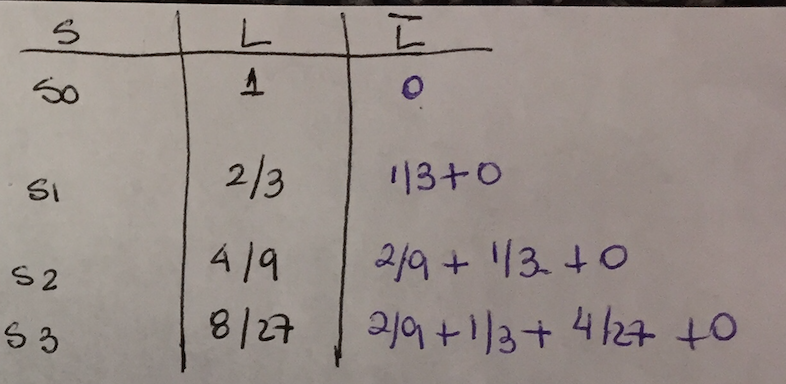 S L L̅
S0 1 0
S1 2/3 1/3+0
S2 4/9 2/9 + 1/3 + 0
S3 8/27 2/9+1/3+ 4/27 +0